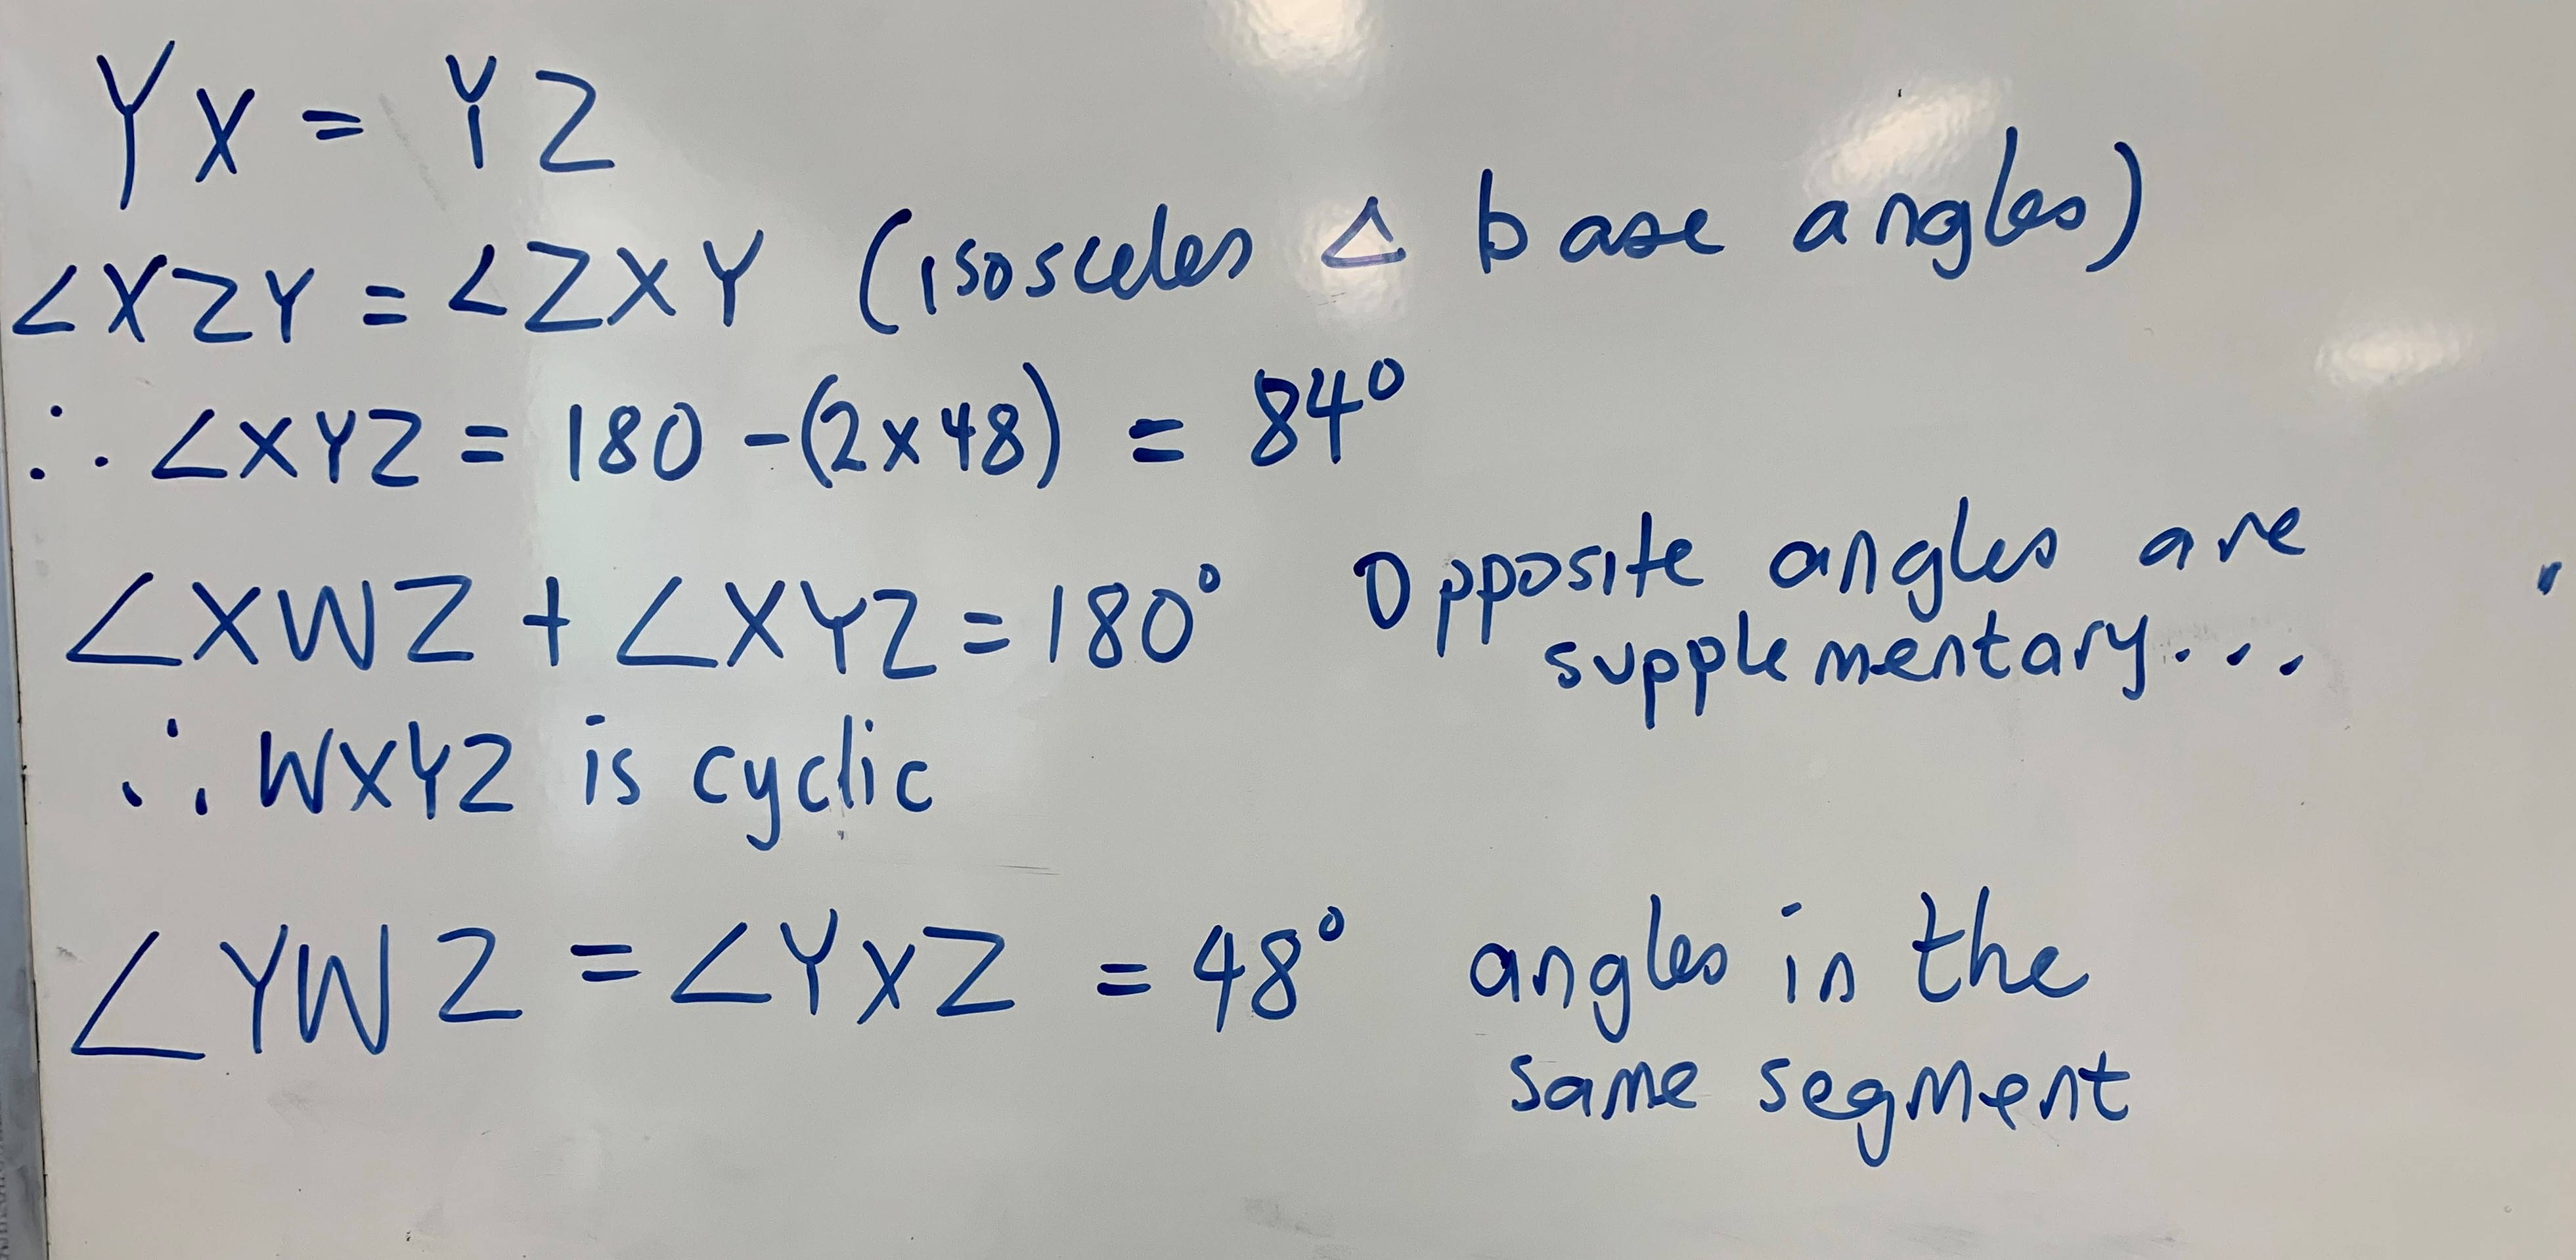 YX = YZ
∠XZY = ∠ZXY (isosceles △ base angles)
∴ ∠XYZ = 180 - (2x48) = 84°
∠XWZ + ∠XYZ = 180° Opposite angles are
supplementary...
∴ WXYZ is cyclic
∠YWZ = ∠YXZ = 48° angles in the
same segment